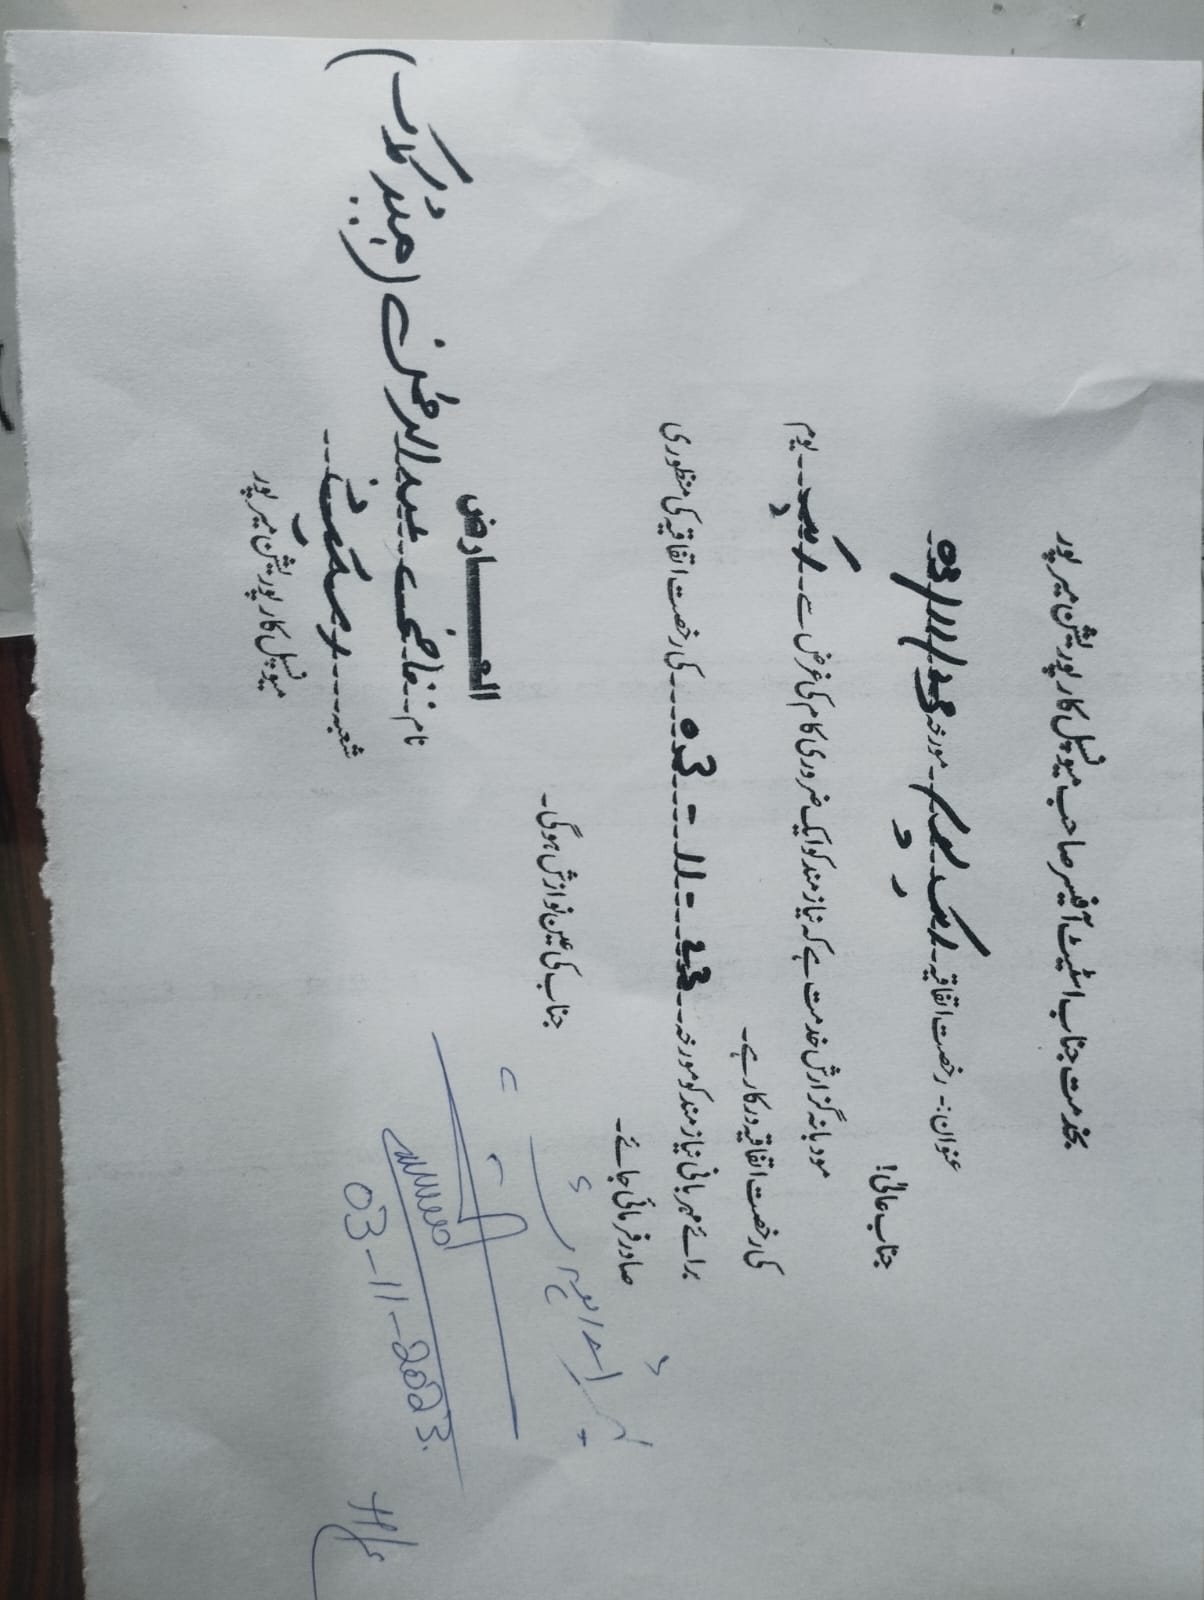 بخدمت جناب اسٹیٹ آفیسر صاحب میونسپل کارپوریشن میرپور
عنوان:- رخصت اتفاقیہ ایک یوم مورخہ 03/11/23
جناب عالی!
مودبانہ گزارش خدمت ہے کہ نیاز مند کو ایک ضروری کام کی غرض سے ایک یوم
کی رخصت اتفاقیہ درکار ہے۔
برائے مہربانی نیاز مند کو مورخہ 03-11-23 کی رخصت اتفاقیہ کی منظوری
صادر فرمائی جائے۔
جناب کی عین نوازش ہوگی۔
العارض
نام قاضی عبدالرحمٰن (جنید کلرک)
شعبہ اسٹیٹ
میونسپل کارپوریشن میرپور
03-11-2023